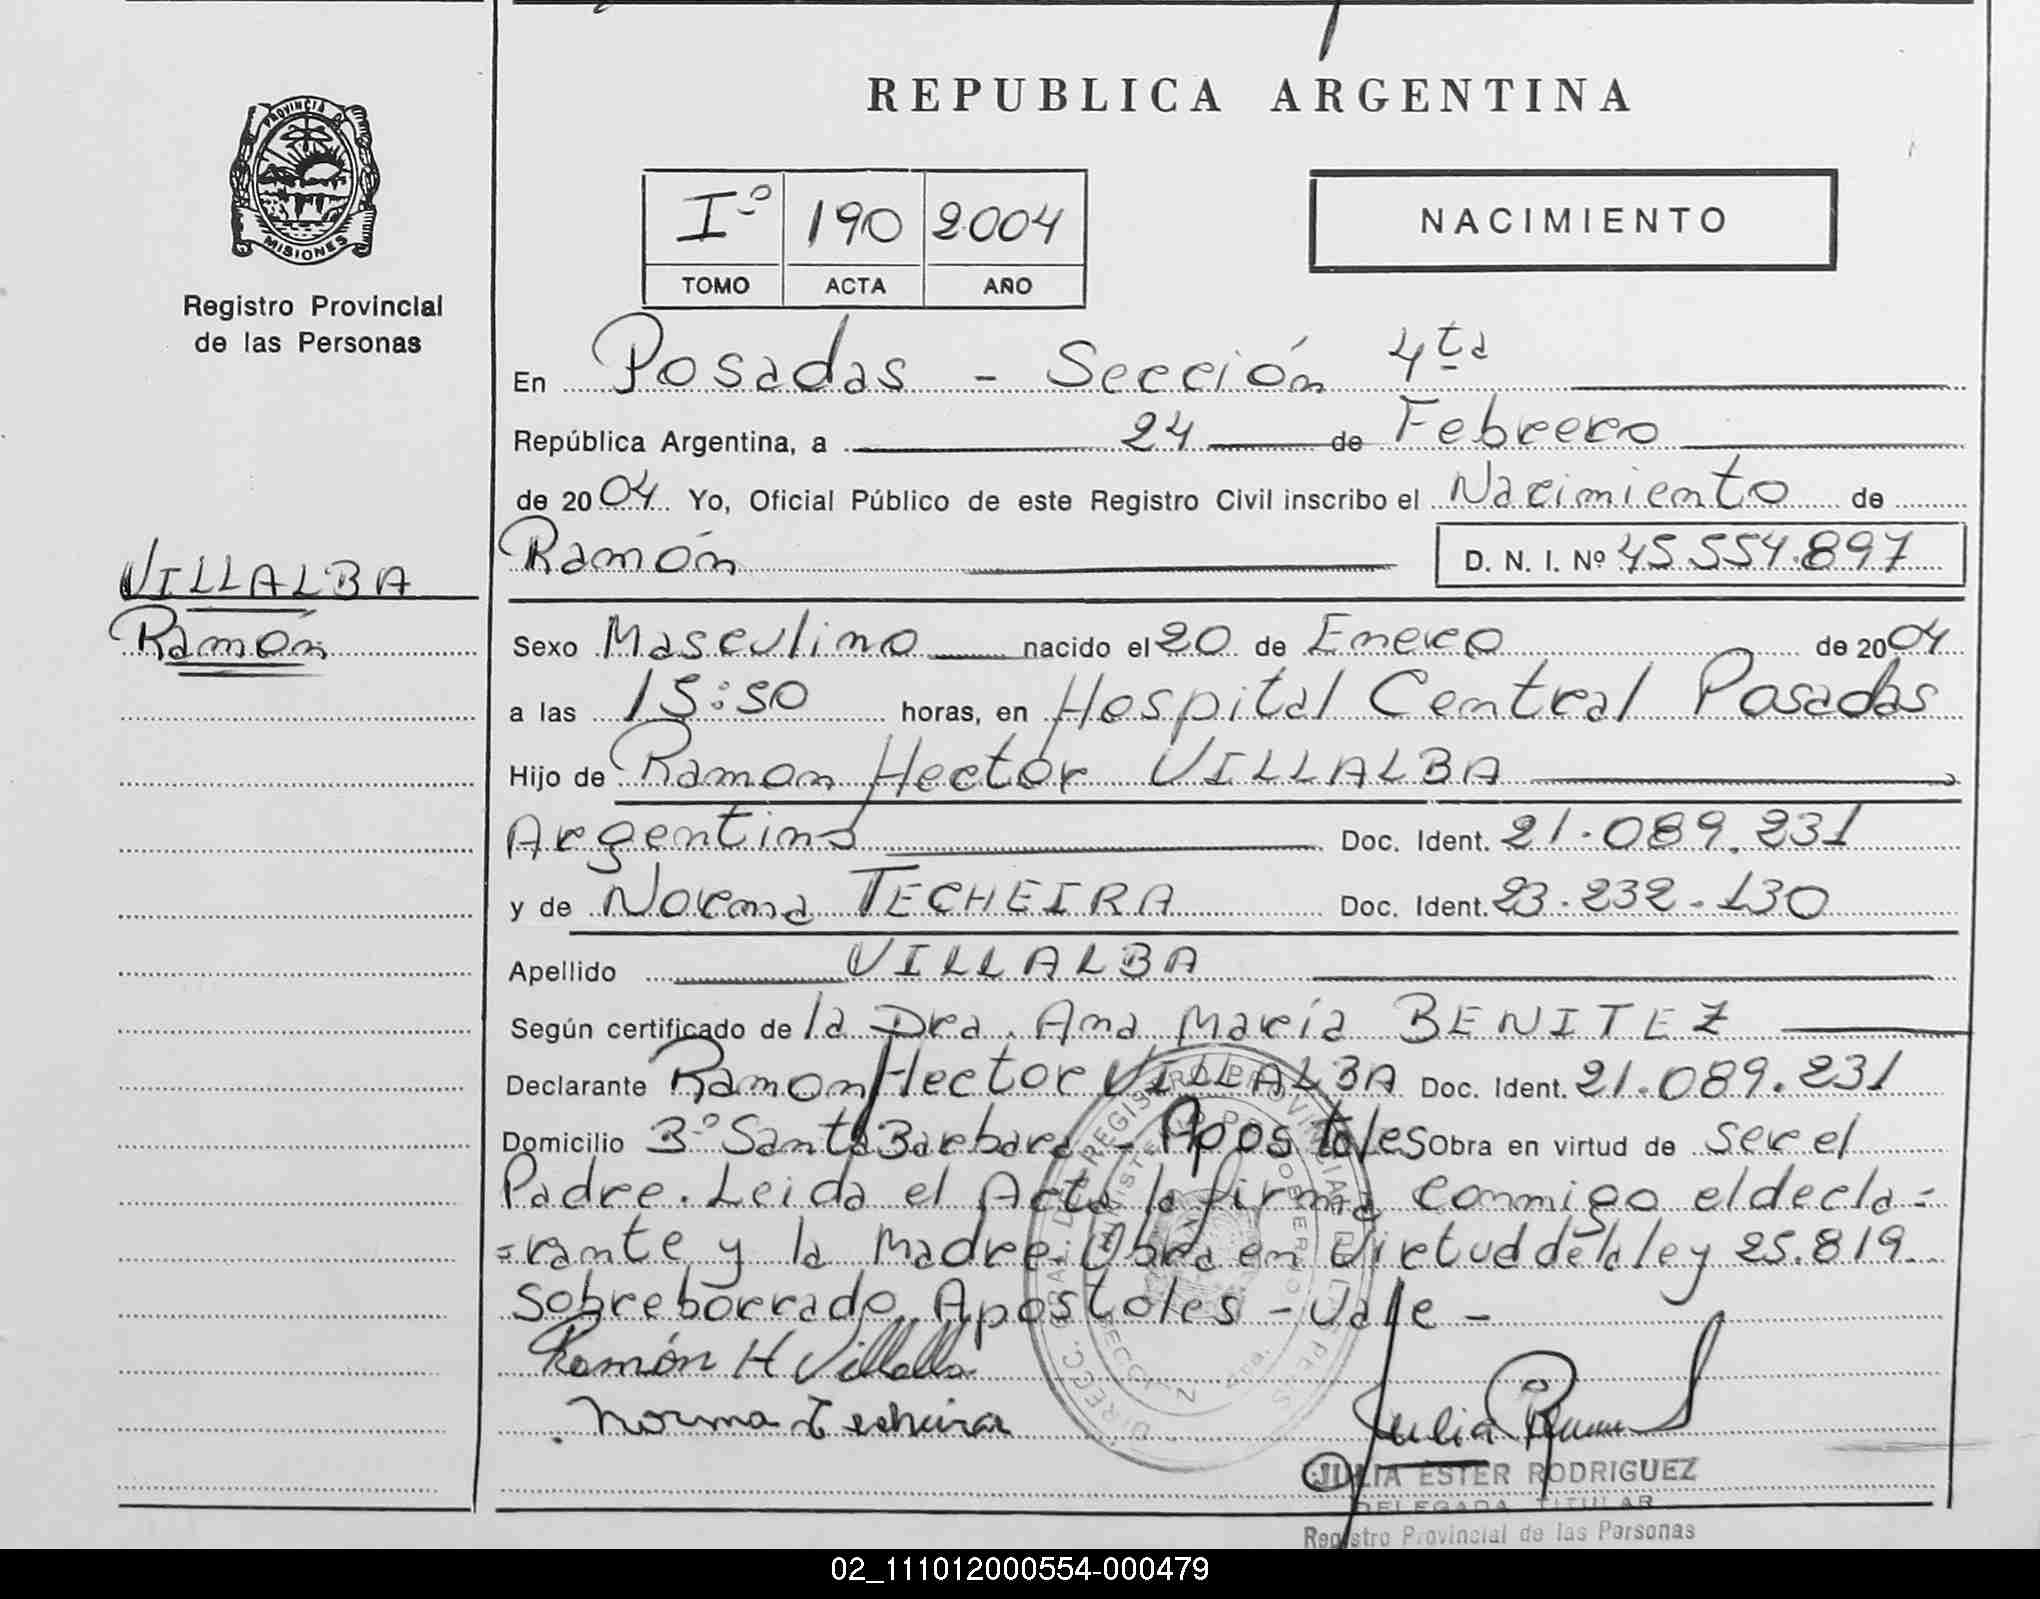 REPUBLICA ARGENTINA
PROVINCIA DE
MISIONES
Registro Provincial
de las Personas
Iº 190 2004
TOMO ACTA AÑO
NACIMIENTO
VILLALBA
Ramón
En Posadas - Sección 4ta
República Argentina, a 24 de Febrero
de 2004 Yo, Oficial Público de este Registro Civil inscribo el Nacimiento de
Ramón D. N. I. Nº 45.554.897
Sexo Masculino nacido el 20 de Enero de 2004
a las 15:50 horas, en Hospital Central Posadas
Hijo de Ramon Hector VILLALBA
Argentino Doc. Ident. 21.089.231
y de Norma TECHEIRA Doc. Ident. 23.232.130
Apellido VILLALBA
Según certificado de la Dra. Ana María BENITEZ
Declarante Ramon Hector VILLALBA Doc. Ident. 21.089.231
Domicilio Bº Santa Barbara - Apostoles Obra en virtud de ser el
Padre. Leida el Acta la firma conmigo el decla=
=rante y la Madre. Obra en Virtud de la ley 25.819.
Sobreborrado Apostoles - Vale -
Ramón H Villalba
Norma Techeira
Julia
JULIA ESTER RODRIGUEZ
DELEGADA TITULAR
Registro Provincial de las Personas
02_111012000554-000479